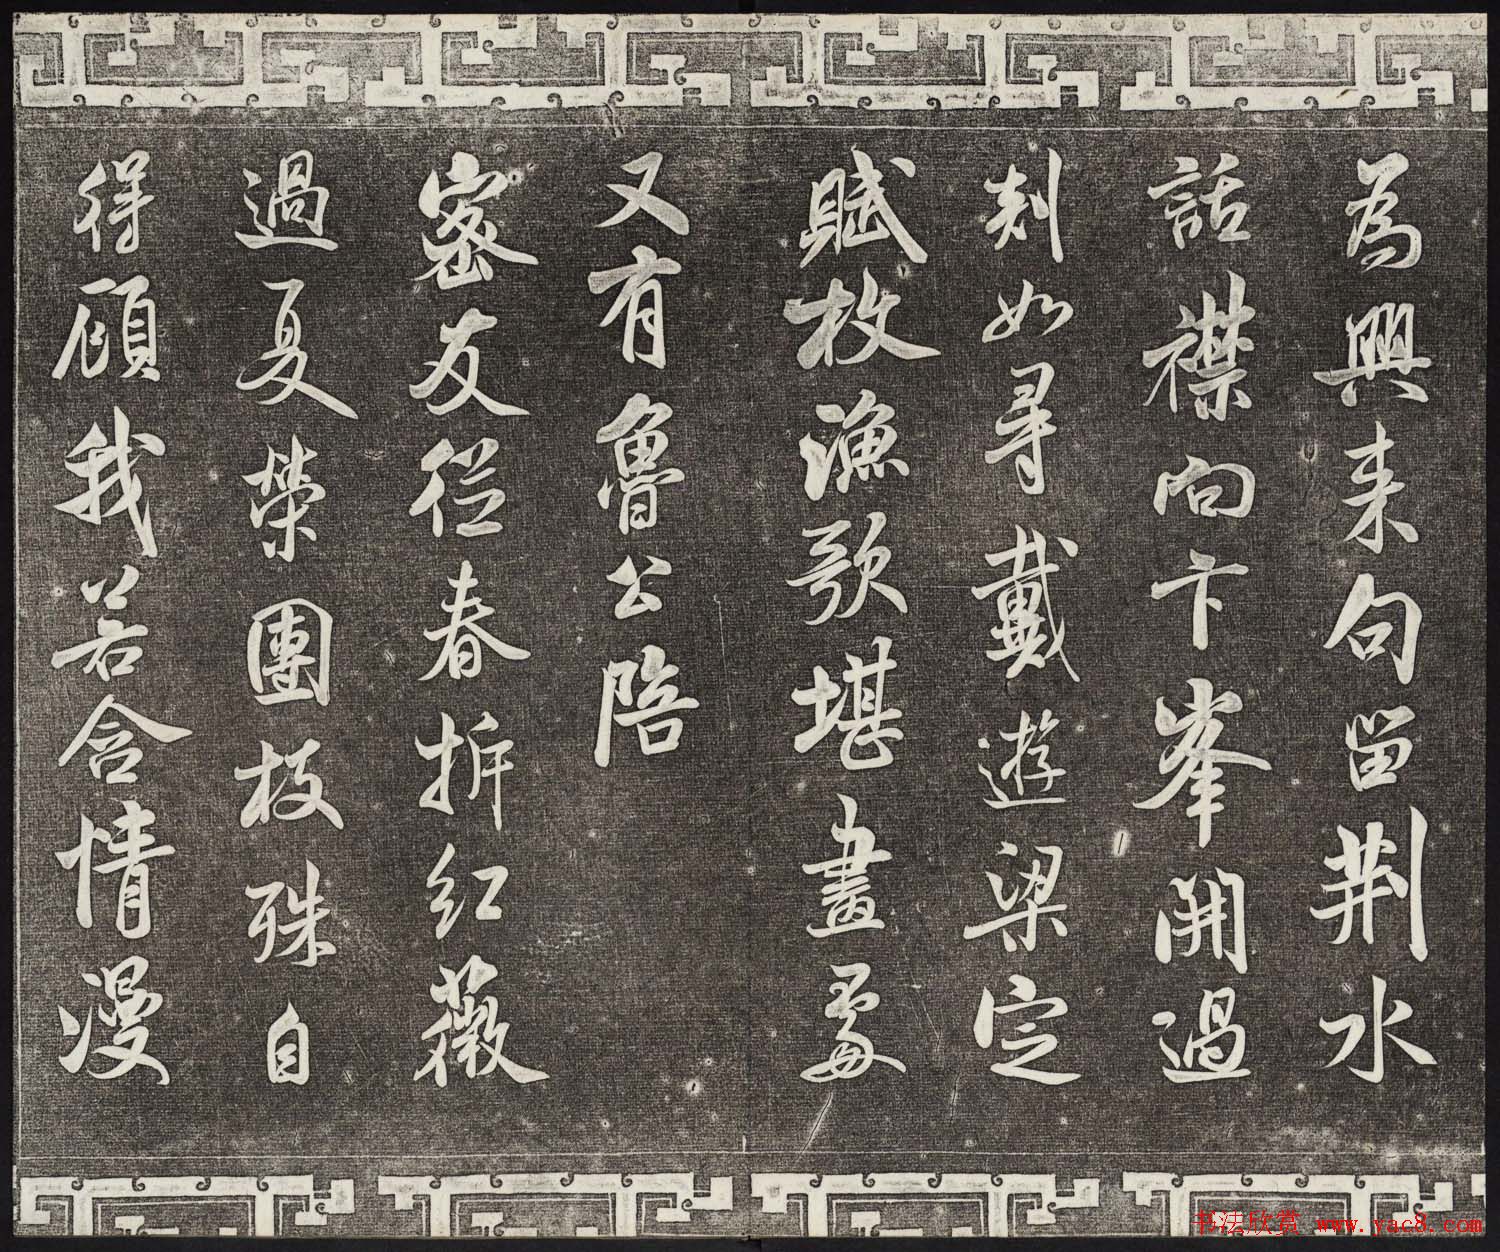 為興来句留荆水
話襟向卞峯開過
剡如尋戴遊梁定
賦枚漁歌堪畫處
又有魯公陪
密友從春拆紅薇
過夏榮團枝殊自
得顧我若含情漫
书法欣赏 www.yac8.com